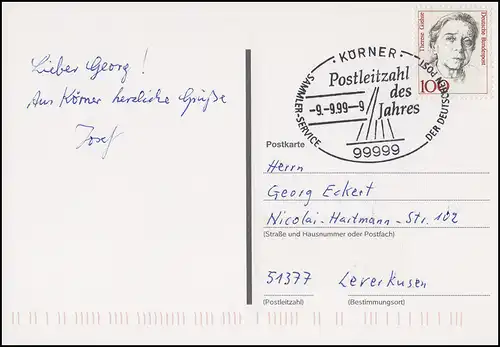 Lieber Georg!
Aus Körner herzliche Grüße
Josef
Therese Giehse
Deutsche Bundespost
100
· KÖRNER ·
SAMMLER-SERVICE
DER DEUTSCHEN POST
Postleitzahl
des
Jahres
-9.-9.99-9
99999
Postkarte
Herrn
Georg Eckert
Nicolai-Hartmann-Str. 102
(Straße und Hausnummer oder Postfach)
51377 Leverkusen
(Postleitzahl) (Bestimmungsort)